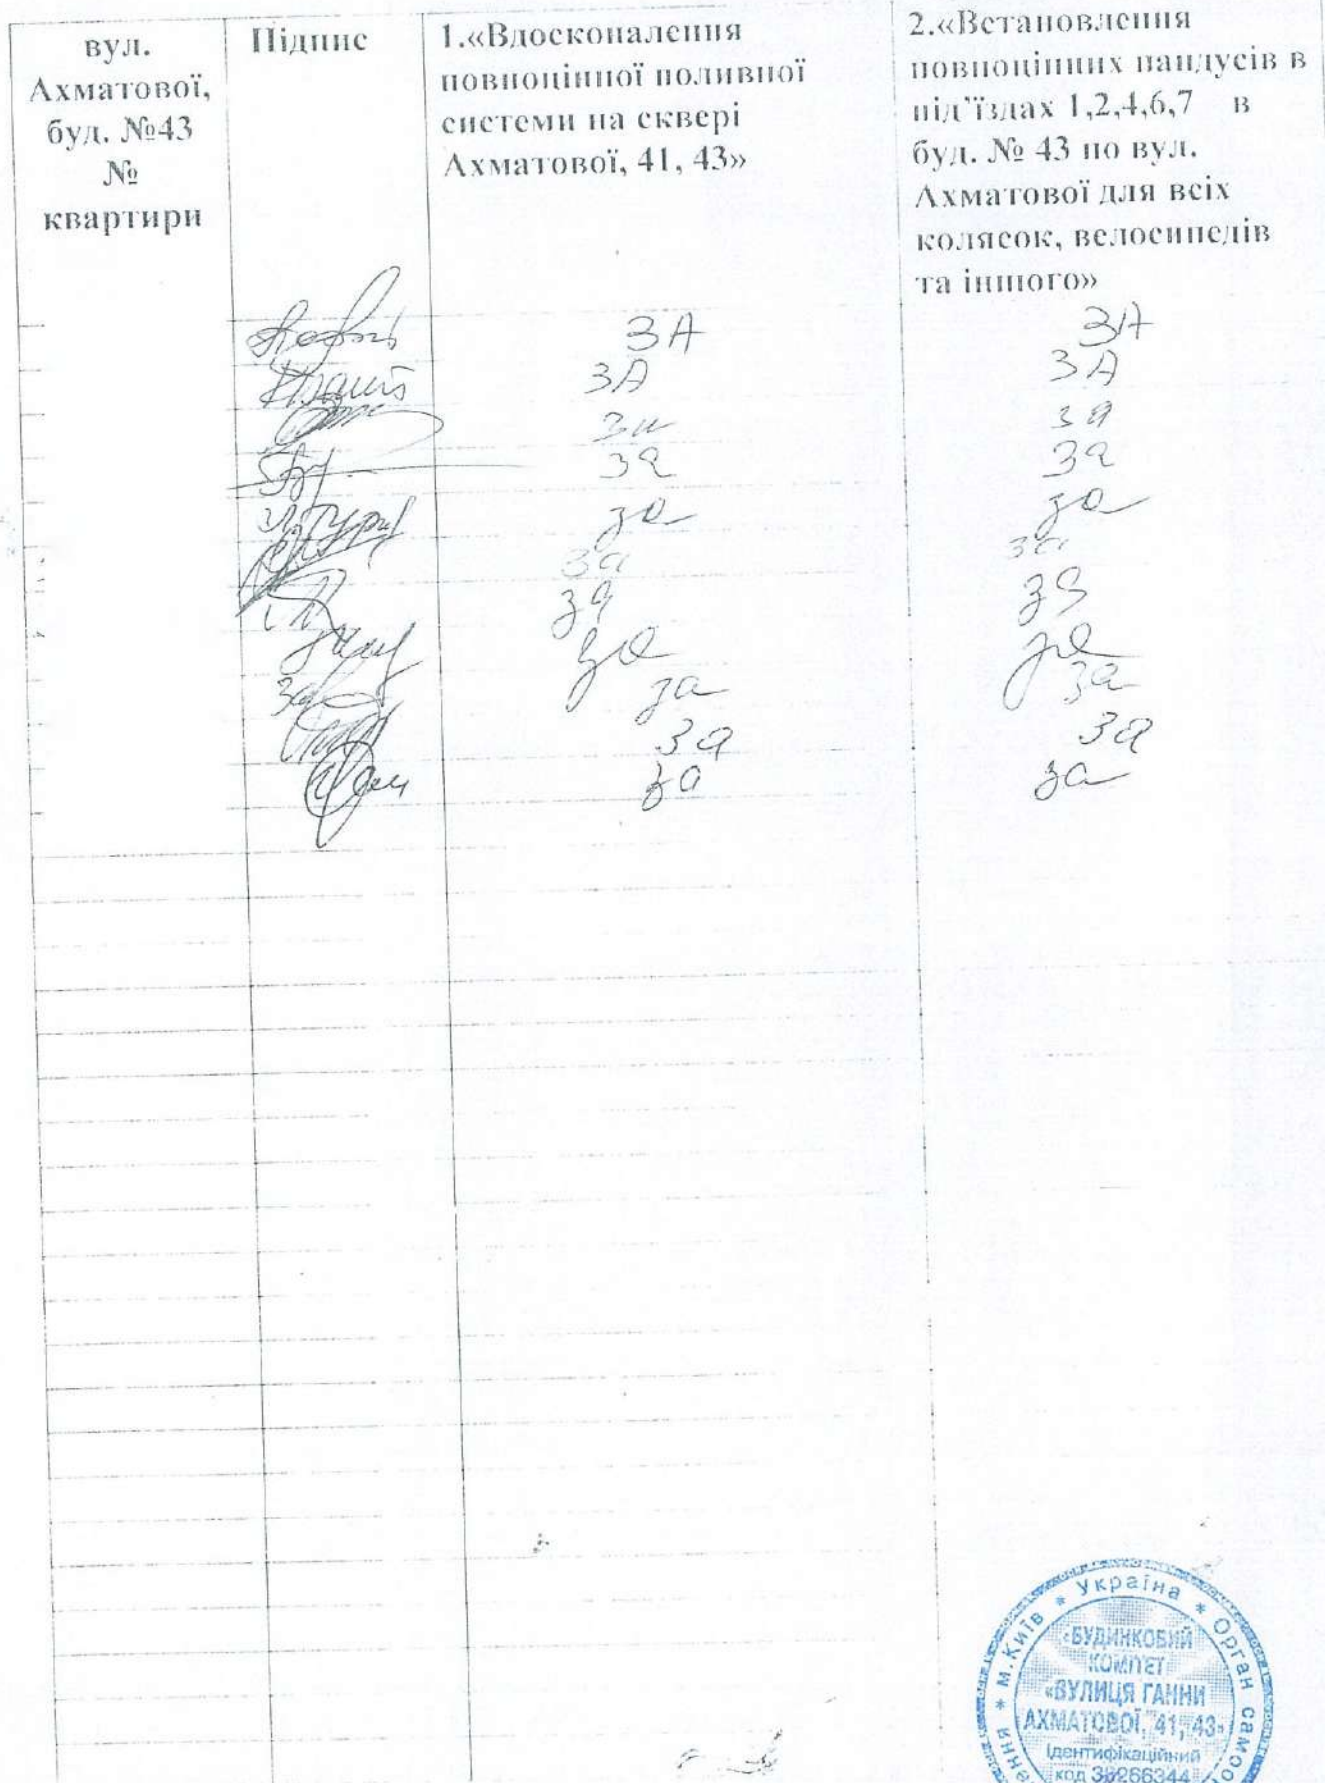 вул.
Ахматової,
буд. №43
№
квартири
Підпис
1.«Вдосконалення
повноцінної поливної
системи на сквері
Ахматової, 41, 43»
2.«Встановлення
повноцінних пандусів в
під’їздах 1,2,4,6,7 в
буд. № 43 по вул.
Ахматової для всіх
колясок, велосипедів
та іншого»
ЗА ЗА
ЗА ЗА
За за
за за
за за
за за
за за
за за
за за
за за
за за
* м. Київ * Україна * Орган само
«БУДИНКОВИЙ
КОМІТЕТ
«ВУЛИЦЯ ГАННИ
АХМАТОВОЇ, 41, 43»
Ідентифікаційний
код 38266344